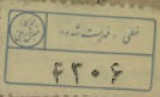 خطی - فهرست شده
۴۳۰۶